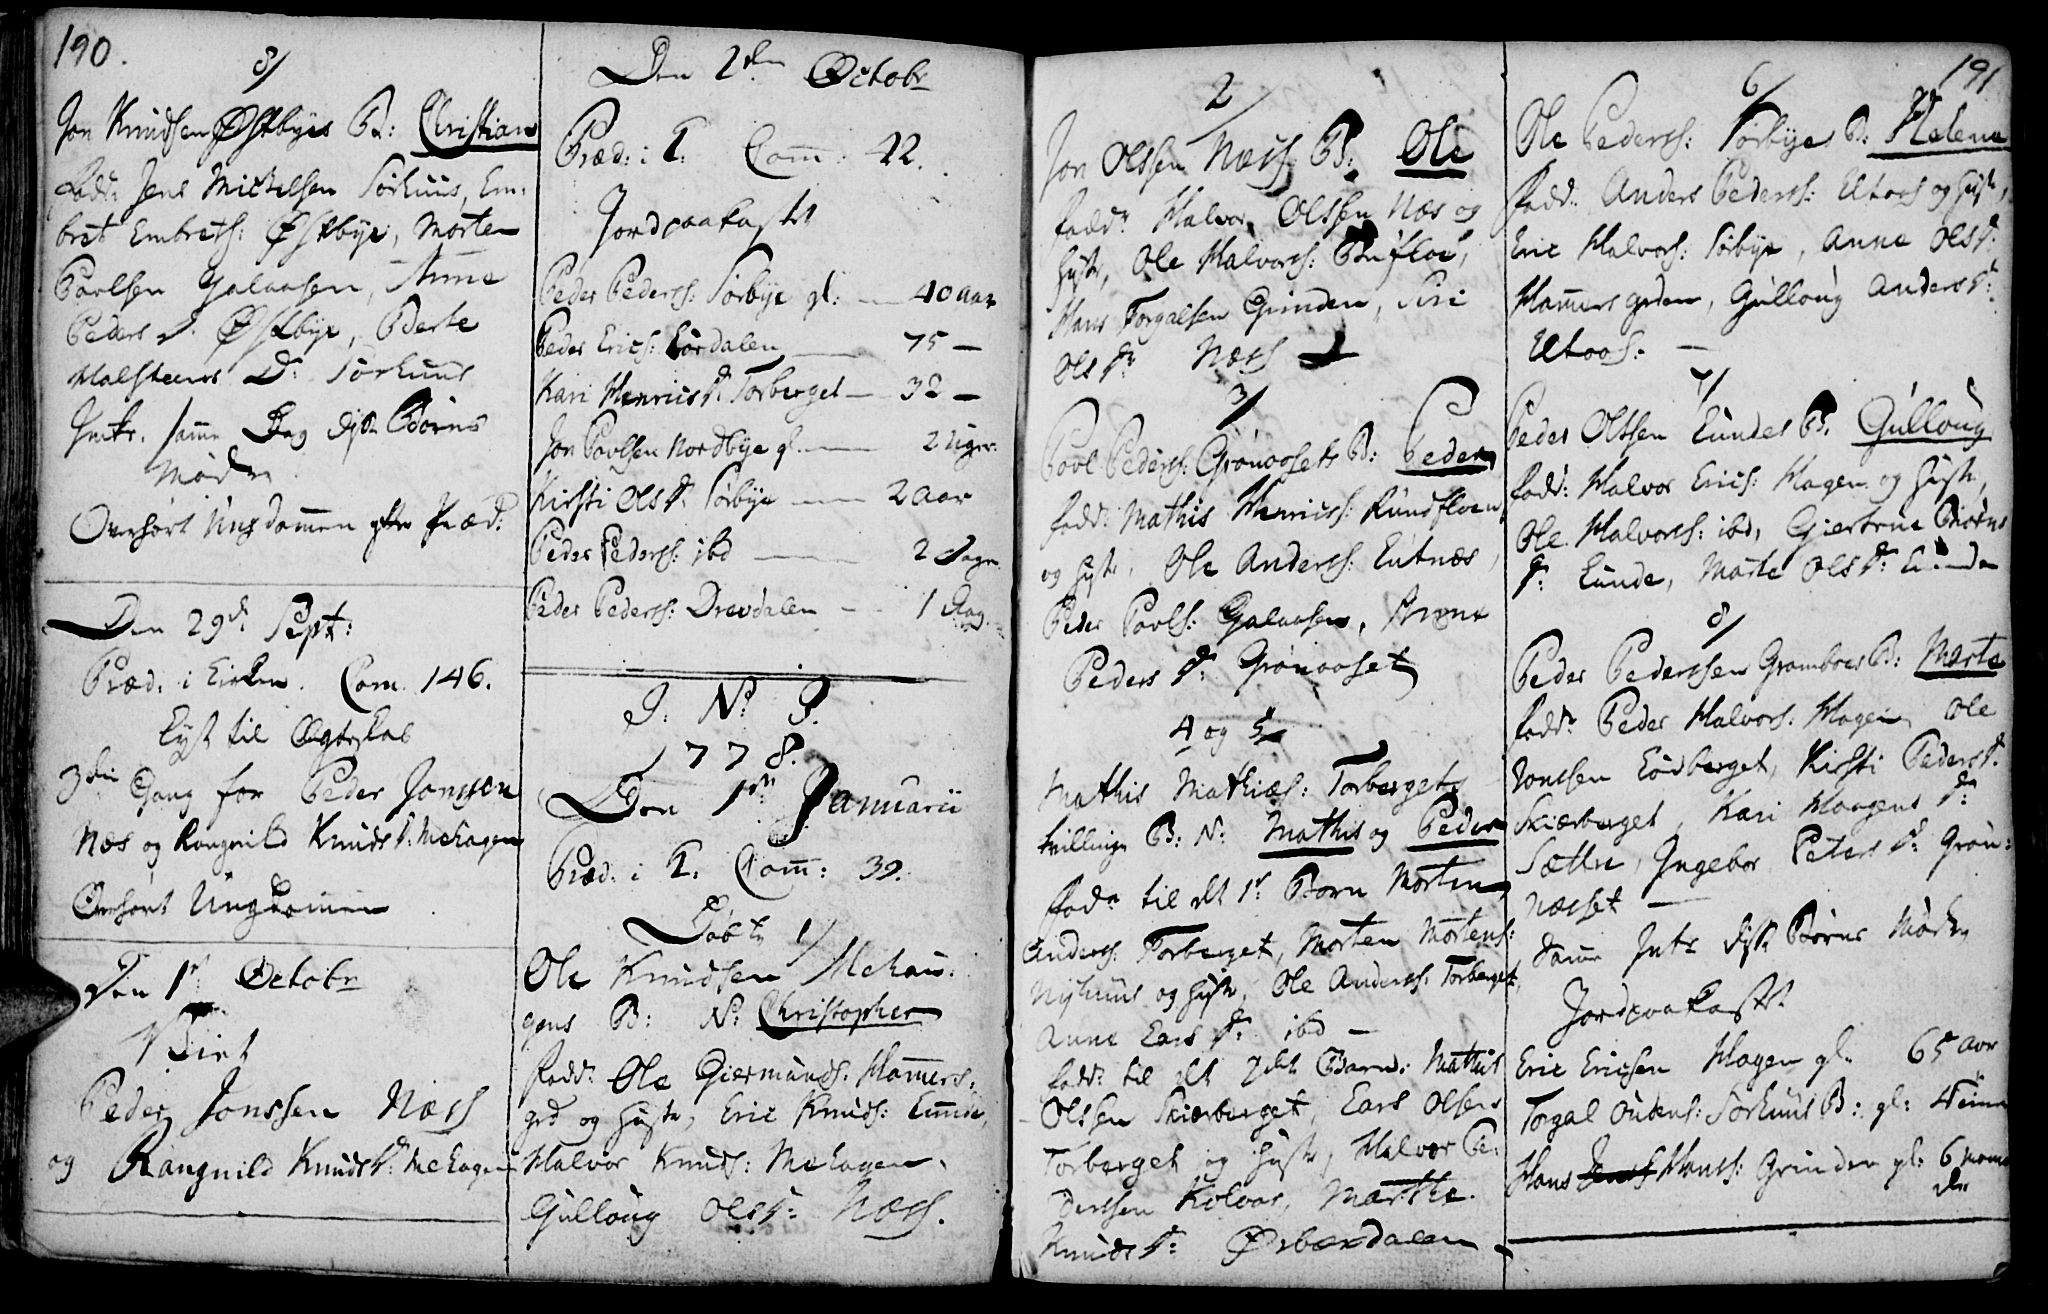 190.
8/
Jon Knudsen Østbyes B: Christian
fadd: Jens Michelsen Sørhuus, Em-
bret Embrets: Østbye, Morten
Povlsen Galaasen, Anne
Peders D. Østbye, Berte
Halsteens D: Sørhuus
Intr. samme Dag disse Børns
Mødre
Overhørt Ungdommen efter Præd:
Den 29de Sept:
Præd: i Kirken. Com. 146.
Lyst til Ægteskab
3die Gang for Peder Jonssen
Næs og Rangnild Knudsd: Mehagen
Overhørt Ungdommen
Den 1ste Octobr
Viet
Peder Jonssen Næss
og Rangnild Knudsd: Mehagen
Den 2den Octobr
Præd: i T: Com: 42.
Jordpaakastet
Peder Peders: Sørbye gl: — 40 aar
Peder Erics: Lørdalen — 75 —
Kari Henricsd: Torberget — 32 —
Jon Povlsen Nordbye gl. — 2 Uger.
Kirsti Olsd: Sørbye — 2 Aar
Peder Peders: ibd — 2 Dage
Peder Peders: Drevdalen — 1 Dag.
I: N: J.
1778.
Den 1ste Januarii
Præd: i T. Com: 39.
Døbte
1/
Ole Knudsen Mehau-
gens B: N: Christopher
Fadd: Ole Giermunds: Hamers-
grd og Hustr, Eric Knuds: Lunde,
Halvor Knuds: Mehagen,
Gulloug Olsd: Næss.
2/
Jon Olssen Næss B: Ole
fadd: Halvor Olssen Næs og
Hustr, Ole Halvors: Bufloe,
Hans Torgalsen Grinden, Siri
Olsd: Næss —
3/
Povl Peders: Grønoosets B: Peder
fadd: Mathis Henrics: Rundfloen
og Hustr, Ole Anders: Lutnæs,
Peder Povls: Galaasen, Anne
Peders d: Grønooset
4 og 5/
Mathis Mathiæs: Torbergets
tvillinge B: N: Mathis og Peder
Fadr til det 1ste Barn Morten
Anders: Torberget, Morten Mortens:
Nyhuus og Hustr, Ole Anders: Torberget,
Anne Lars d: ibd —
fadd: til det 2det Barn: Mathis
Olssen Skiærberget, Lars Olsen
Torberget og Hustr, Halvor Pe-
derssen Kolvos, Marthe
Knudsd: Ørbækdalen
191
6/
Ole Peders: Sørbyes B: Helene
fadd: Anders Peders: Utoos og Hustr,
Eric Halvors: Sørbye, Anne Olsd:
Hamersgrden, Gulloug Andersd:
Utoos. —
7/
Peder Olssen Lundes B. Gulloug
fadd: Halvor Erics: Hagen og Hustr,
Ole Halvors: ibd, Giertrue Biørns
d: Lunde, Marte Olsd: Lunde
8/
Peder Pederssen Gramboes B: Marte
fadd: Peder Halvors: Hagen, Ole
Jonssen Lørberget, Kirsti Pedersd:
Skiærberget, Kari Haagens d:
Sættre, Ingebor Peters d: Grøn-
næsset —
Samme Intr disse Børns Mødre
Jordpaakastet
Eric Ericsen Hagen gl: 65 Aar
Torgal Oudens: Sørhuus B: gl: 4 Timer
Hans Hans: Grinden gl: 6 Maane
der